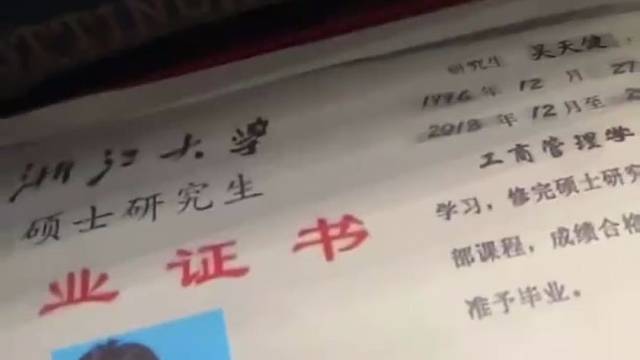 浙江大学
硕士研究生
业证书
研究生 吴天健
1996 年 12 月 27
2018 年 12 月至 2
工商管理学
学习，修完硕士研究
部课程，成绩合格
准予毕业。